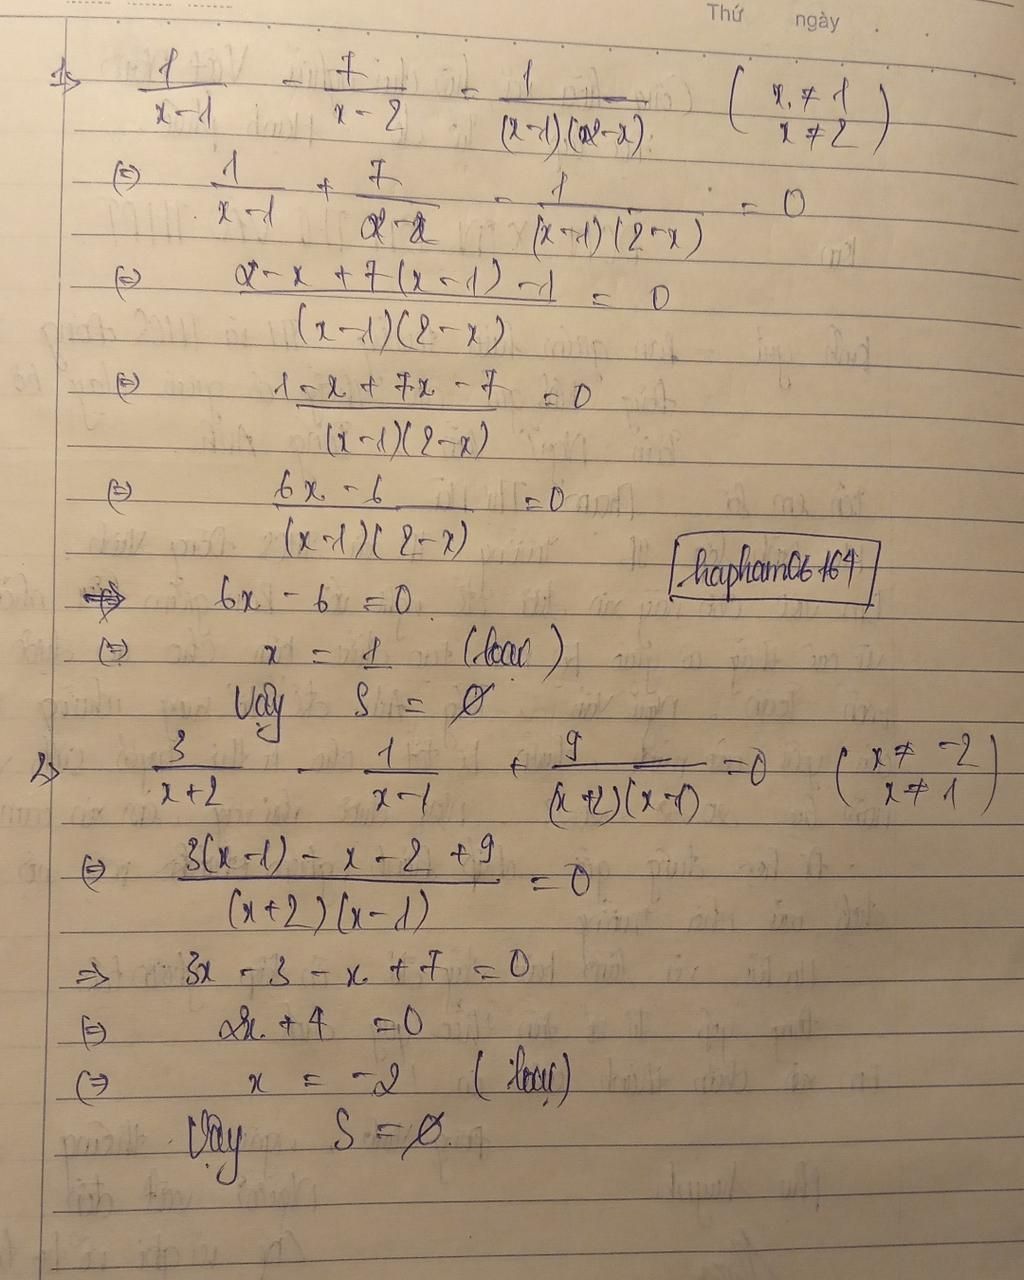 Thứ ngày
1> 1/(x-1) - 7/(x-2) = 1/((x-1)(2-x)) (x ≠ 1 x ≠ 2)
(=) 1/(x-1) + 7/(2-x) - 1/((x-1)(2-x)) = 0
(=) (2-x+7(x-1)-1)/((x-1)(2-x)) = 0
(=) (1-x+7x-7)/((x-1)(2-x)) = 0
(=) (6x-6)/((x-1)(2-x)) = 0
hapham06164
=> 6x - 6 = 0
(=) x = 1 (loại)
Vậy S = ∅
2> 3/(x+2) - 1/(x-1) + 9/((x+2)(x-1)) = 0 (x ≠ -2 x ≠ 1)
(=) (3(x-1)-x-2+9)/((x+2)(x-1)) = 0
=> 3x - 3 - x + 7 = 0
(=) 2x + 4 = 0
(=) x = -2 (loại)
Vậy S = ∅.